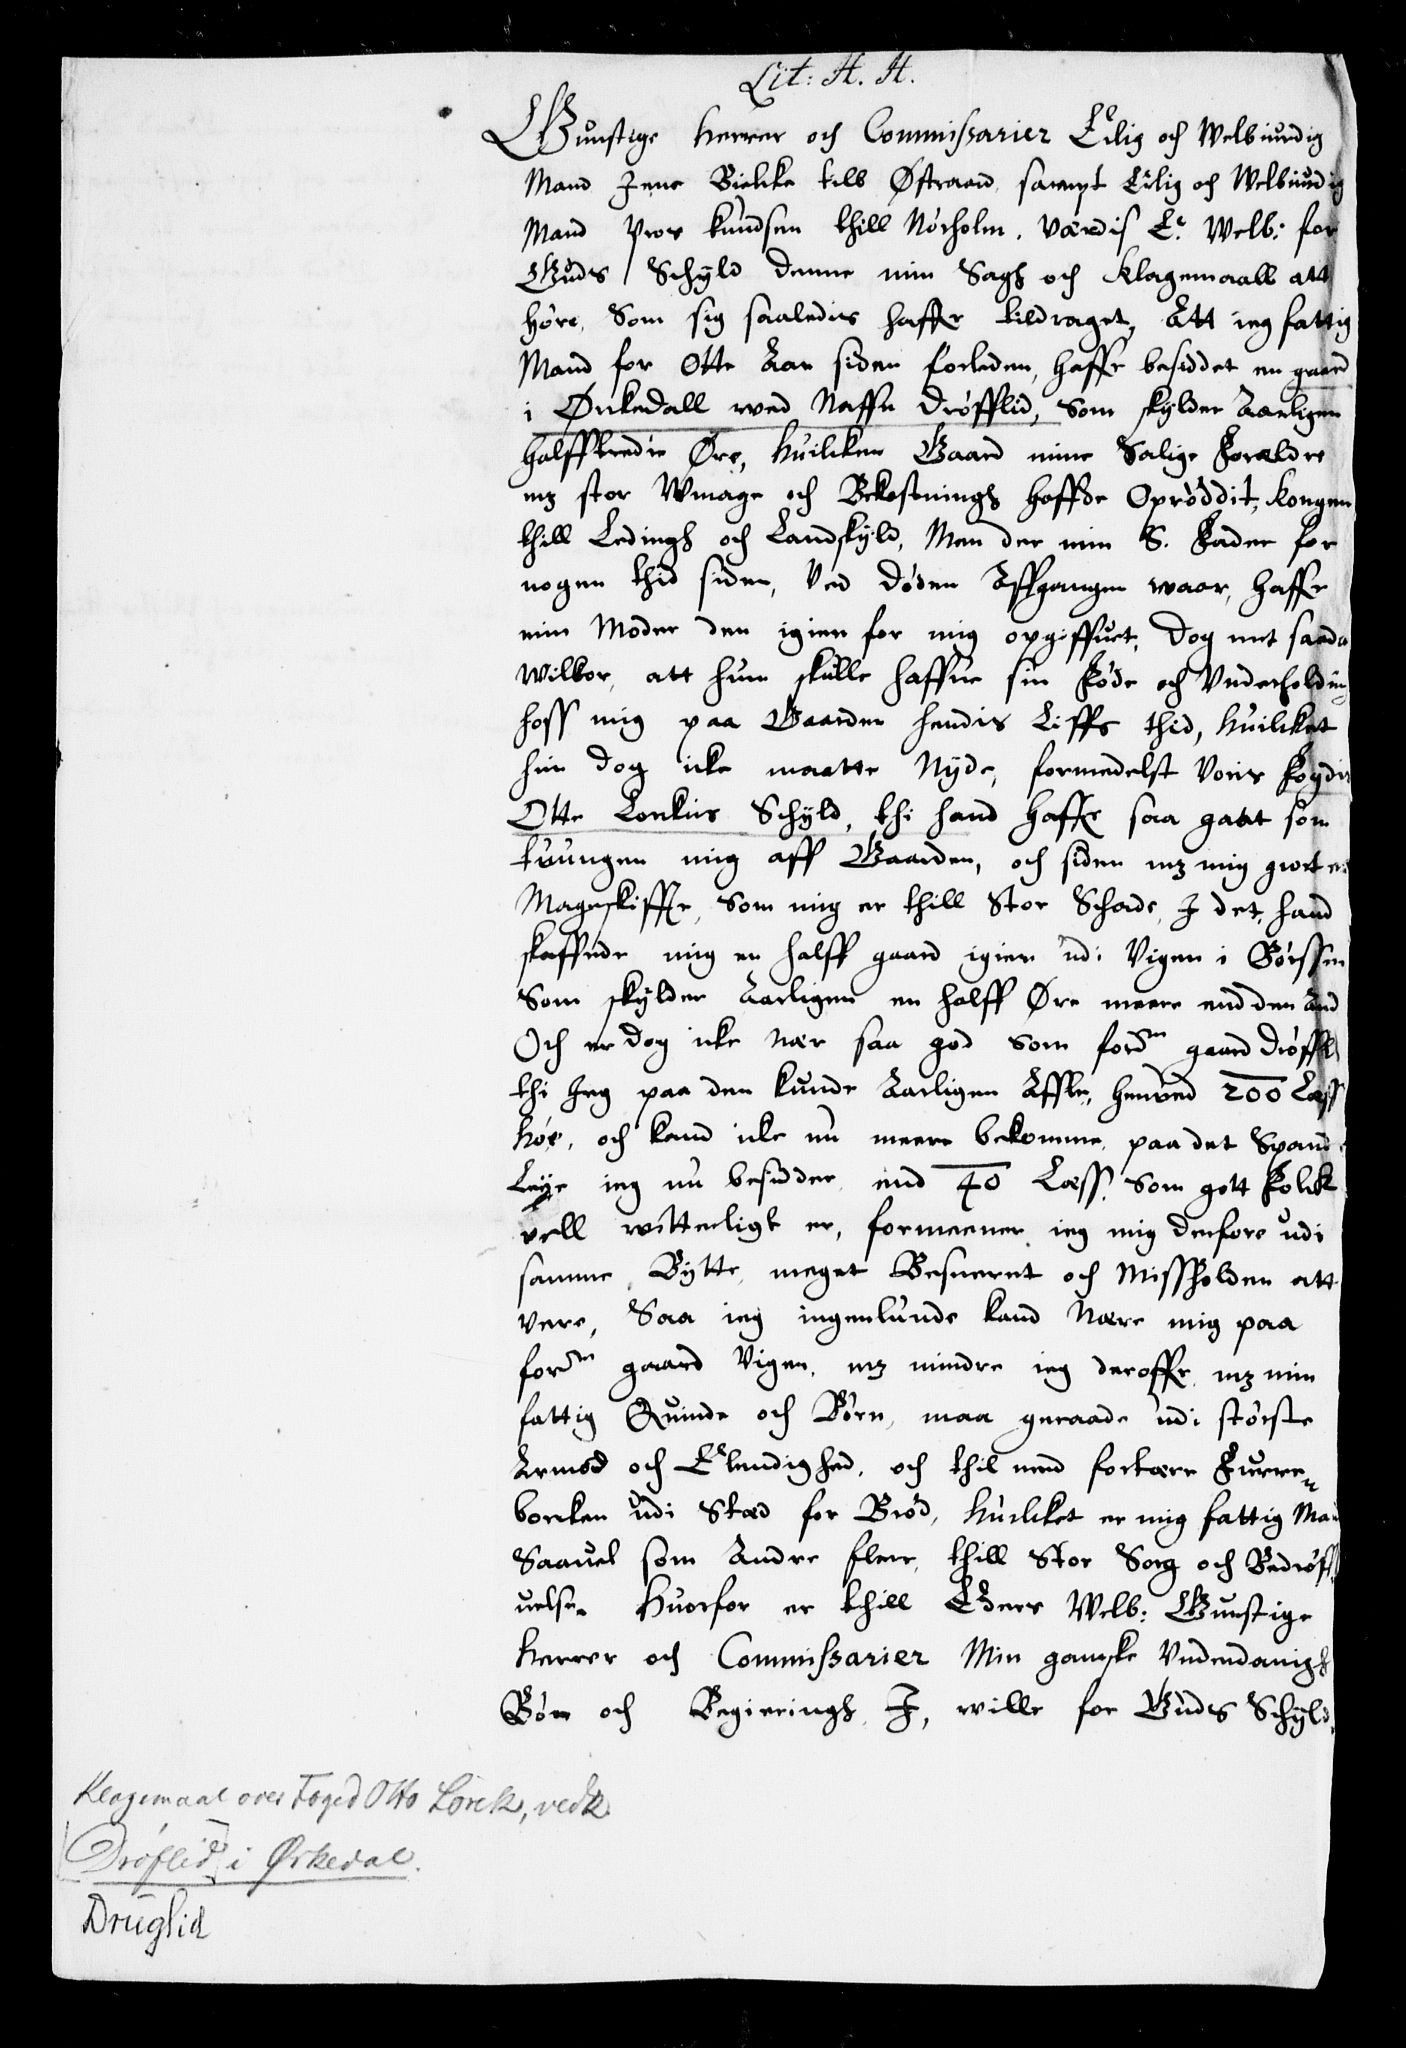 Lit: H. H.
Gunstige Herrer och Commissarier Erlig och Welbiurdig
Mand Jens Bielcke till Østraad, sampt Erlig och Welbiurdig
Mand Iver Knudsen thill Nörholm. Værdis E. Welb: for
Guds Schÿld denne min Sagh och Klagemaall att
höre, Som sig saaledis haffr tildraget, Att ieg fattig
Mand for Otte Aar siden forleden, haffr besiddet en gaard
i Ørckedall wed Naffn Dröfflid, Som skÿlder Aarligen
halfftredie Øre, huilcken Gaard mine Salige Foreldre
mz stor Wmage och Bekostningh haffde Oprÿddit, Kongen
thill Ledingh och Landskÿld, Men der min S. Fader for
nogen thid siden, ved döden Affgangen waar, haffr
min Moder den igien for mig opgiffuet, Dog met saadan
wilkor, att hun skulle haffue sin Föde och Vnderholding
hoss mig paa Gaarden hendis Liffs thid, huilcket
hun dog icke maatte Nÿde, formedelst Voris Fogdis
Otte Lorckis Schÿld, thi hand haffr saa gaat som
tuungen mig aff Gaarden, och siden mz mig giort et
Mageskiffte, Som mig er thill Stor Schade, I det hand
skaffede mig en halff gaard igien udi Vigen i Börssen
Som skÿlder Aarligen en halff Øre meere end den And
Och er dog icke nær saa god som fordn gaard Dröffli
thi Jeg paa den kunde Aarligen Affle, henved 200 Læss
höe, och kand icke nu meere bekomme paa det Spand
Leÿe ieg nu besidder end 40 Læss, Som gott Folck
vell witterligt er, formeener ieg mig derfore udi
samme Bÿtte, meget Besueret och Missholden att
vere, Saa ieg ingenlunde kand Nære mig paa
fordn gaard Vigen, mz mindre ieg deroffr mz min
fattig Quinde och Börn, maa geraade udi störste
Armod och Elendighed, och thil med fortære Furre
borcken udi Stæd for Bröd, huilcket er mig fattig Mand
Saauel som Andre flere, thill Stor Sorg och Bedröff
uelse. Huorfor er thill Eders Welb: Gunstige
Herrer och Commissarier Min ganske Vnderdanigh
Bön och Begieringh I, wille for Guds Schÿld
Klagemaal over Foged Otto Lorck, vedk
Dröflid i Ørkedal.
Druglid